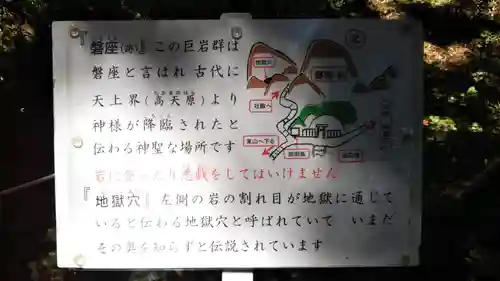 『磐座(跡)』この巨岩群は
磐座と言はれ 古代に
天上界(高天原)より
神様が降臨されたと
伝わる神聖な場所です
岩に登ったり悪戯をしてはいけません
『地獄穴』左側の岩の割れ目が地獄に通じて
いると伝わる地獄穴と呼ばれていて いまだ
その奥を知らずと伝説されています
地獄穴
磐座
社殿へ